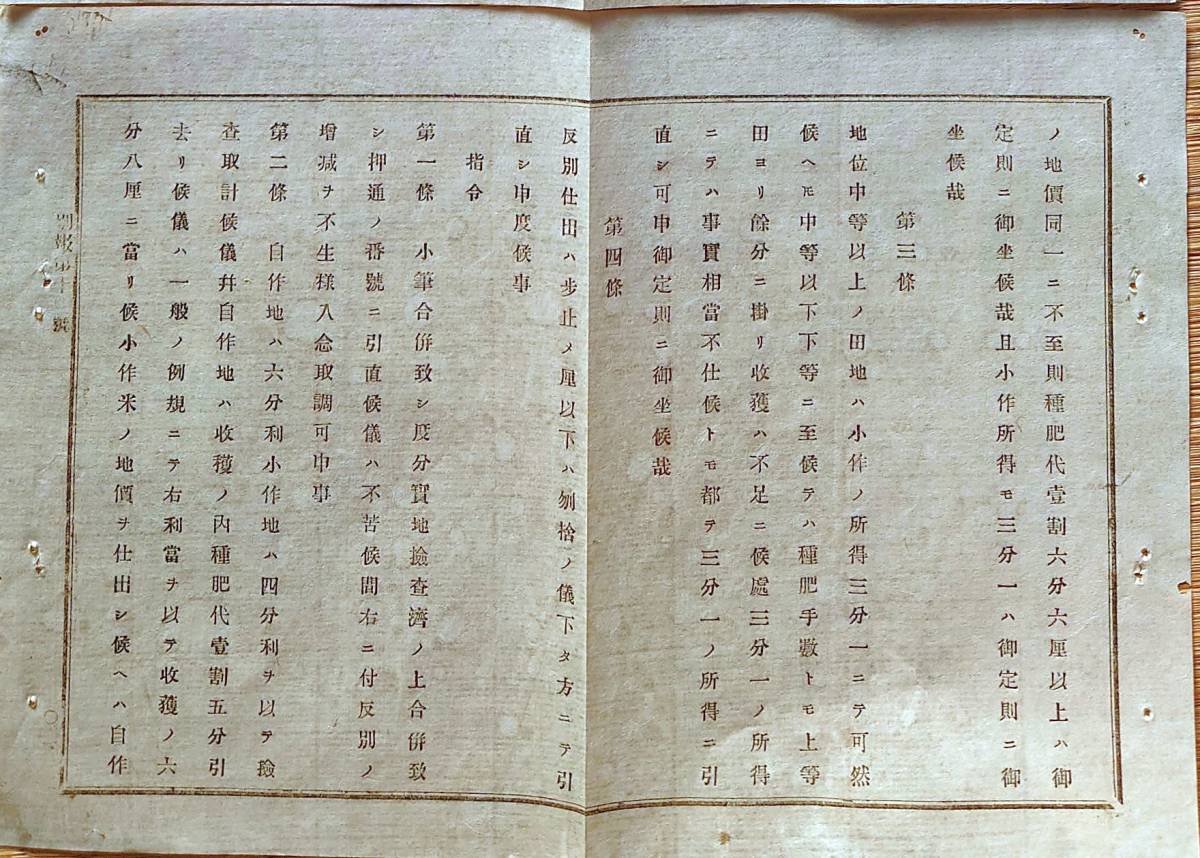 ノ地價同一ニ不至則種肥代壹割六分六厘以上ハ御
定則ニ御坐候哉且小作所得モ三分一ハ御定則ニ御
坐候哉
第三條
地位中等以上ノ田地ハ小作ノ所得三分一ニテ可然
候ヘモ中等以下下等ニ至候テハ種肥手數トモ上等
田ヨリ餘分ニ掛リ收獲ハ不足ニ候處三分一ノ所得
ニテハ事實相當不仕候トモ都テ三分一ノ所得ニ引
直シ可申御定則ニ御坐候哉
第四條
反別仕出ハ步止メ厘以下ハ刎捨ノ儀下タ方ニテ引
直シ申度候事
指令
第一條 小筆合併致シ度分實地撿查濟ノ上合併致
シ押通ノ番號ニ引直候儀ハ不苦候間右ニ付反別ノ
增减ヲ不生樣入念取調可申事
第二條 自作地ハ六分利小作地ハ四分利ヲ以テ撿
查取計候儀幷自作地ハ收穫ノ內種肥代壹割五分引
去リ候儀ハ一般ノ例規ニテ右利當ヲ以テ收獲ノ六
分八厘ニ當リ候小作米ノ地價ヲ仕出シ候ヘハ自作
別報第十 號